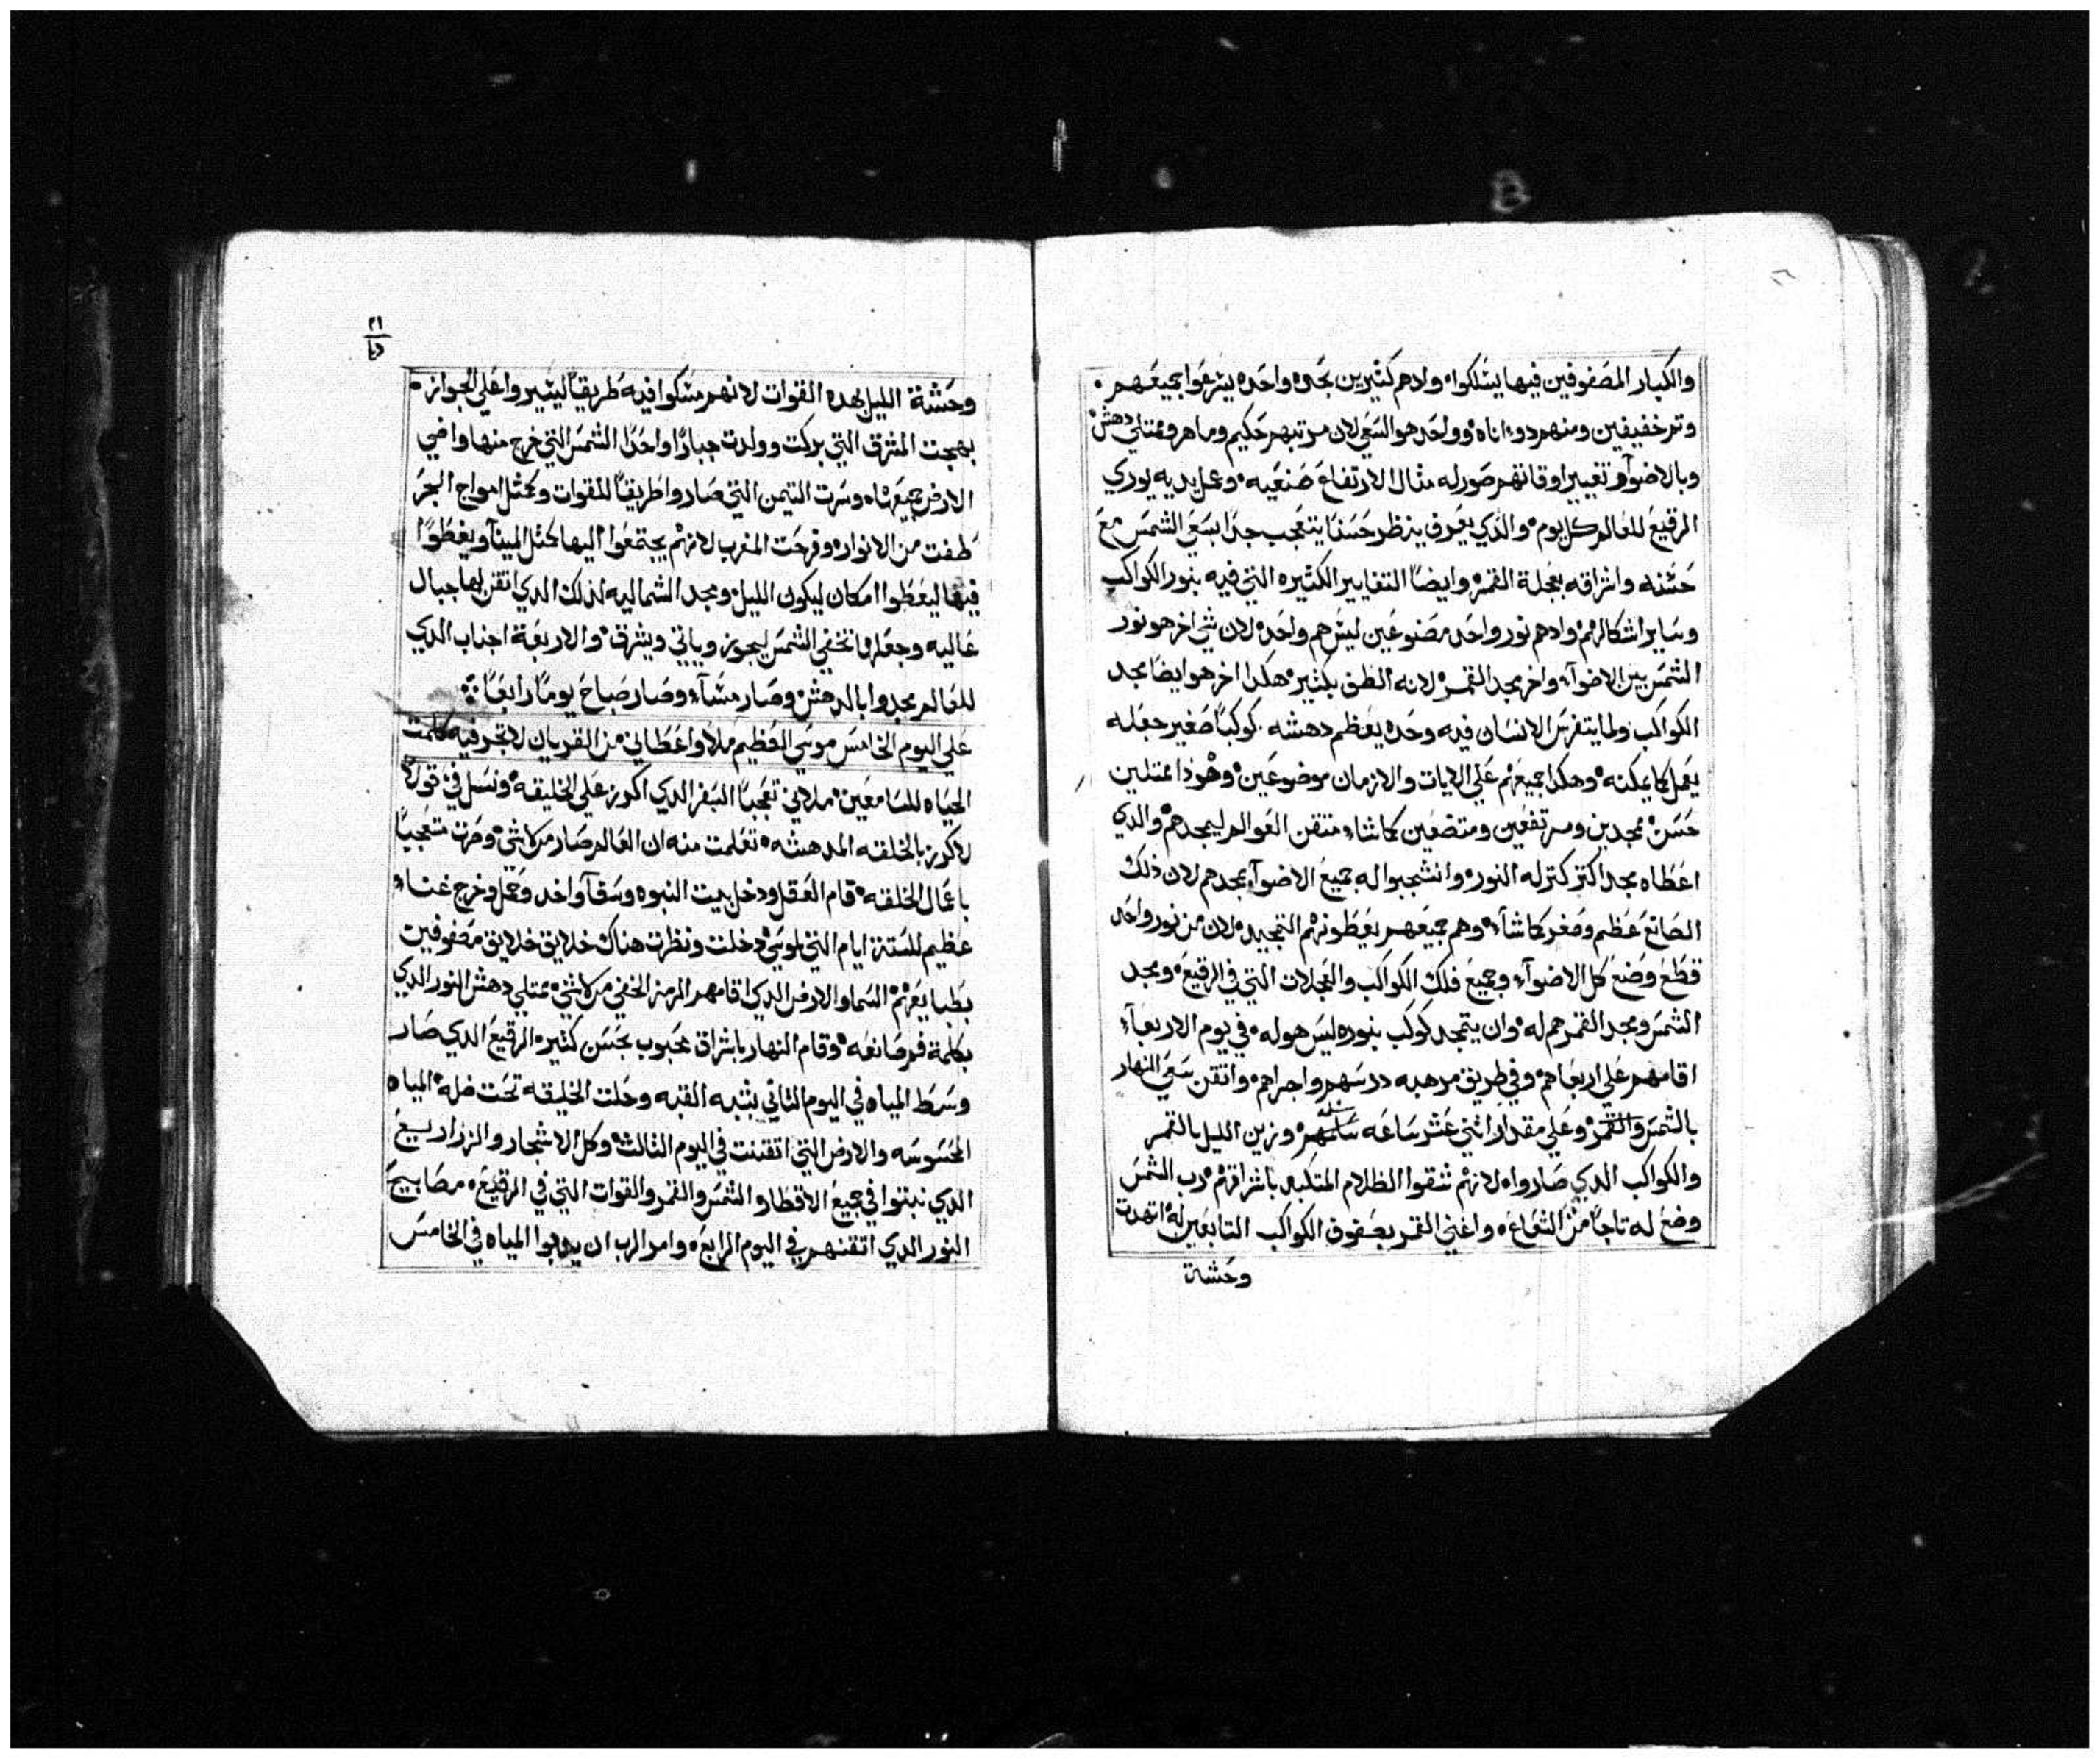 والكبار المصفوفين فيها يسلكوا ولادهم كثيرين بحده واحده يسرعوا جميعهم
وتم خفيفين ومنهم دو اناه وواحد هو السعي لان مرتبهم حكيم وماهر وممتلي دهش
وبالاضوآ وتغيير اوقاتهم صور له مثال الارتفاع صنعيه وعمل يديه يوري
الرقيع للعالم كل يوم والدي يعرف ينظر حسنا يتعجب جدا بسعي الشمس مع
حسنه واشراقه بعجلة القمر وايضا التغايير الكثيره التي فيه بنور الكواكب
وساير اشكالهم وادهم نور واحد مصنوعين ليس هم واحد لان شي اخر هو نور
الشمس بين الاضوآ واخر مجد القمر لانه الطف بكثير هكدا اخر هو ايضا مجد
الكواكب ولما يتفرس الانسان فيه وحده يعظم دهشه كوكبا صغير جعله
يعمل كما يمكنه وهكدا جميعهم علي الايات والازمان موضوعين وهودا ممتلين
حسن ممجدين ومرتفعين ومتضعين كما شاء متقن العوالم ليمجدهم والدي
اعطاه مجد اكتر كتر له النور وانشجبوا له جميع الاضوآ بمجدهم لان ذلك
الصانع عظم وصغر كما شآء وهم جميعهم يعطونهم التمجيد لان من نور واحد
قطع وضع كل الاضوآء وجميع فلك الكواكب والعجلات التي في الرقيع ومجد
الشمس ومجد القمر هم له وان يتمجد كوكب بنوره ليس هو له في يوم الاربعآء
اقامهم علي ارباعهم وفي طريق مرهبه درسهم واجراهم واتقن سعي النهار
بالشمس والقمر وعلي مقدار اثني عشر ساعه وزين الليل بالقمر
والكواكب الدي صاروا لانهم شقوا الظلام المتكبد باشراقهم رب الشمس
وضع له تاجا من الشعاع واغني القمر بصفوف الكواكب التابعين له اتهدت
وحشة
٢١
وحشة الليل بهده القوات لانهم مسكوا فيه طريقا ليسيروا علي الجواز
بهجت المشرق التي بركت وولدت جبارا واحدا الشمس التي خرج منها واضي
الارض جميعها وسرت التيمن التي صاروا طريقا للقوات وكمثل امواج البحر
طفت من الانوار وفرحت المغرب لانهم يجتمعوا اليها كمثل المينآ ويغطوا
فيها ليعطوا امكان ليكون الليل ومجد الشماليه لذلك الدي اتقن لها جبال
عاليه وجعلها تخفي الشمس ليجوز وياتي ويشرق والاربعة اجناب الدي
للعالم مجدوا بالدهش وصار مسآء وصار صباح يوما رابعا
علي اليوم الخامس موسي العظيم ملا واعطاني من القربان لاتجر فيه كلمت
الحياه للسامعين ملاني تعجبا السفر الدي اكرز علي الخليقه ونسل في قولا
لاكرز بالخلقه المدهشه تعلمت منه ان العالم صار من لاشي وصرت متعجبا
باعمال الخلقه قام العقل ودخل بيت النبوه وسقآ واخد وحمل وخرج غناء
عظيم للستة ايام التي لموسي دخلت ونظرت هناك خلايق خلايق مصفوفين
بطبايعهم السما والارض الدي اقامهم الرمز الخفي من لاشي ممتلي دهش النور الدي
بكلمة فم صانعه وقام النهار باشراق محبوب بحسن كثير الرقيع الدي صار
وسرط المياه في اليوم الثاني بشبه القبه وحلت الخليقه تحت ظله المياه
المحسوسه والارض التي اتقنت في اليوم الثالث وكل الاشجار والزراريع
الدي نبتوا في جميع الاقطار والشمس والقمر والقوات التي في الرقيع مصابيح
النور الدي اتقنهم في اليوم الرابع وامر الرب ان المياه في الخامس